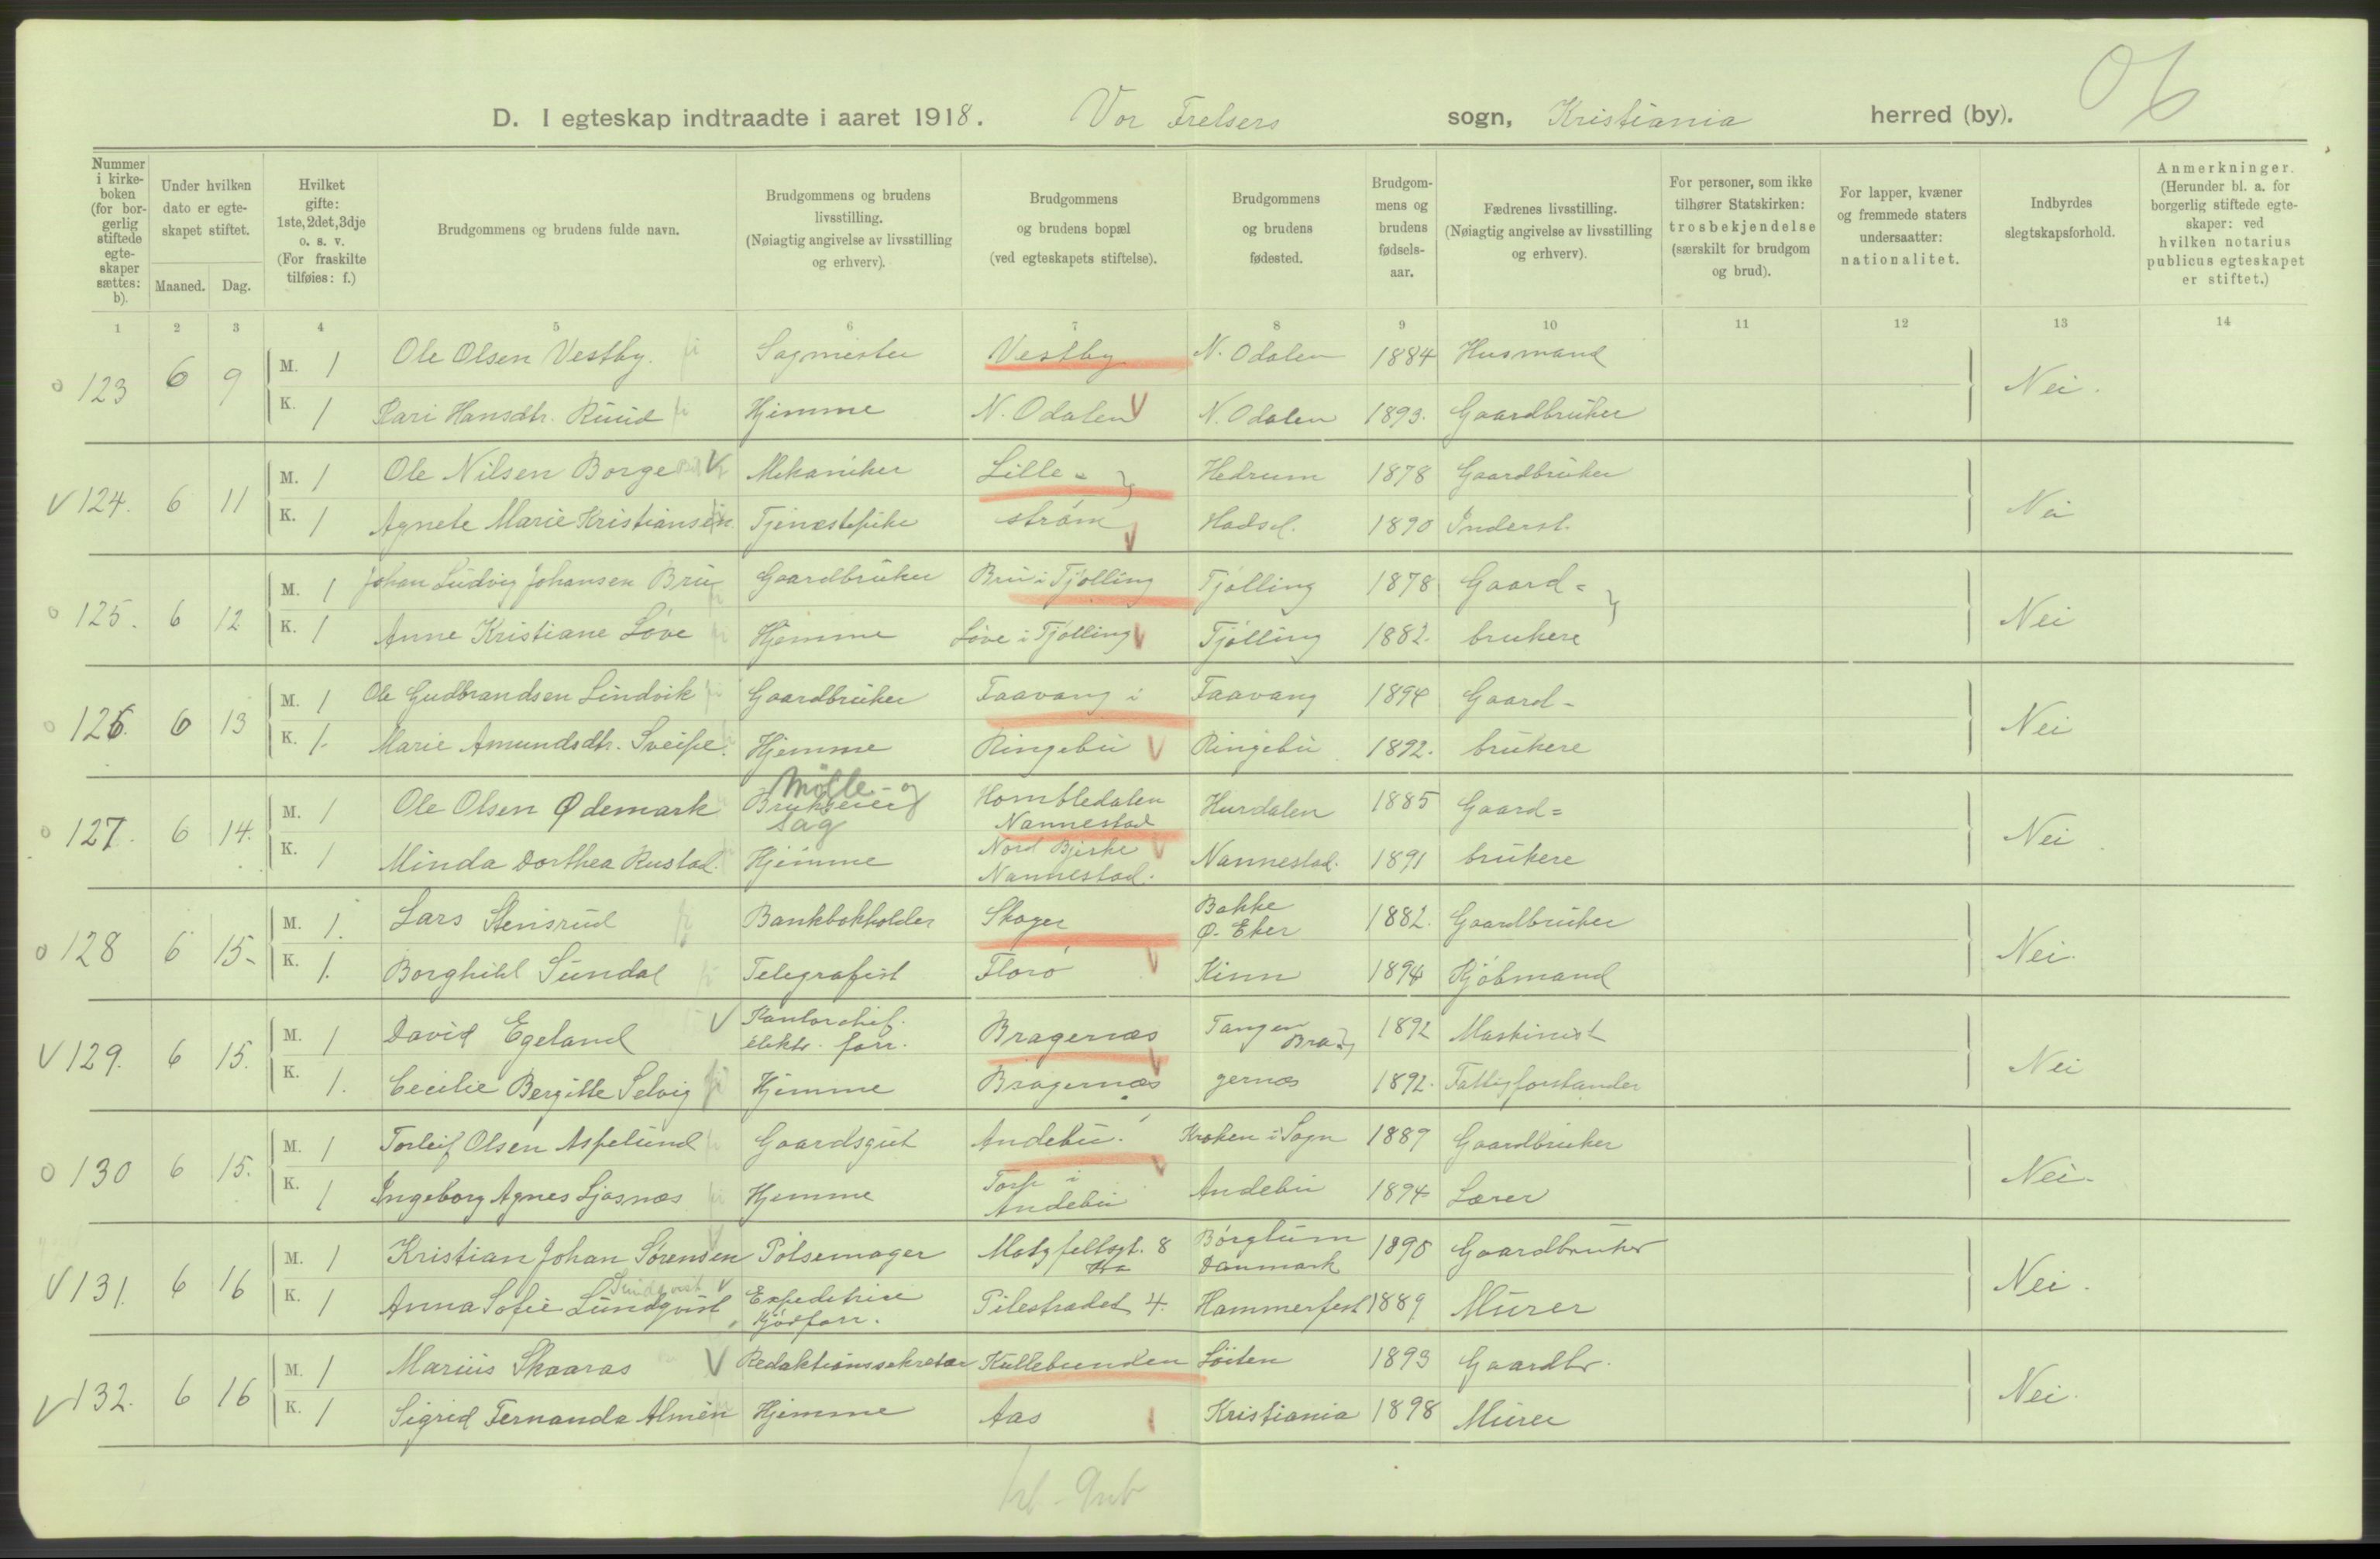 D. I egteskap indtraadte i aaret 1918. Vor Frelsers sogn, Kristiania herred (by).
Nummer i kirkeboken (for borgerlig stiftede egteskaper sættes: b).
Under hvilken dato er egteskapet stiftet.
Maaned. Dag.
Hvilket gifte: 1ste, 2det, 3dje o. s. v. (For fraskilte tilføies: f.)
Brudgommens og brudens fulde navn.
Brudgommens og brudens livsstilling. (Nøiagtig angivelse av livsstilling og erhverv).
Brudgommens og brudens bopæl (ved egteskapets stiftelse).
Brudgommens og brudens fødested.
Brudgommens og brudens fødselsaar.
Fædrenes livsstilling. (Nøiagtig angivelse av livsstilling og erhverv).
For personer, som ikke tilhører Statskirken: trosbekjendelse (særskilt for brudgom og brud).
For lapper, kvæner og fremmede staters undersaatter: nationalitet.
Indbyrdes slegtskapsforhold.
Anmerkninger. (Herunder bl. a. for borgerlig stiftede egteskaper: ved hvilken notarius publicus egteskapet er stiftet.)
1 2 3 4 5 6 7 8 9 10 11 12 13 14
123 6 9 M. 1 Ole Olsen Vestby. Sagmester Vestby N. Odalen 1884 Husmand Nei.
K. 1 Kari Hansdtr. Ruud Hjemme N. Odalen N. Odalen 1893. Gaardbruker
124. 6 11 M. 1 Ole Nilsen Borge Mekaniker Lille- Hedrum 1878 Gaardbruker Nei
K. 1 Agnete Marie Kristiansen Tjenestepike strøm Hadsel. 1890 Inderst.
125. 6 12 M. 1 Johan Ludvig Johansen Bru Gaardbruker Bru i Tjølling Tjølling 1878 Gaard= Nei
K. 1 Anne Kristiane Løve Hjemme Løve i Tjølling Tjølling 1882. brukere
126. 6 13 M. 1 Ole Gudbrandsen Lindvik Gaardbruker Faavang i Faavang 1894 Gaard- Nei
K. 1. Marie Amundsdtr. Sveipe. Hjemme Ringebu Ringebu 1892. brukere
127. 6 14. M. 1 Ole Olsen Ødemark Mølle- og Brukseier sag Hombledalen Nannestad Hurdalen 1885 Gaard= Nei
K. 1 Minda Dorthea Rustad. Hjemme Nord Bjerke Nannestad. Nannestad. 1891 brukere
128 6 15- M. 1. Lars Stensrud Bankbokholder Skoger Bakke Ø. Eker 1882. Gaardbruker Nei.
K. 1. Borghild Sundal Telegrafist Florø Kinn 1894 Kjøbmand
129. 6 15. M. 1 David Egeland Kontorchef. elektr. forr. Bragernæs Tangen Bra- 1892 Maskinist Nei
K. 1. Cecilie Bergitte Selvig Hjemme Bragernæs gernæs 1892. Fattigforstander
130 6 15. M. 1 Torleif Olsen Aspelund Gaardsgut Andebu. Kroken i Sogn 1889 Gaardbruker Nei-
K. 1 Ingeborg Agnes Ljosnæs Hjemme Torp i Andebu Andebu 1894 Lærer
131. 6 16 M. 1 Kristian Johan Sørensen Pølsemager Motzfeltsgt. 8 Kra Børglum Danmark 1890 Gaardbruker Nei.
K. 1 Anna Sofie Lundqvist Lindqvist Expeditrice Kjødforr. Pilestrædet 4. Hammerfest 1889 Murer
132. 6 16 M. 1 Marius Skaaras Redaktionssekretær Kullebunden Løiten 1893 Gaardbr. Nei.
K. 1 Sigrid Fernanda Almén Hjemme Aas Kristiania 1898 Murer